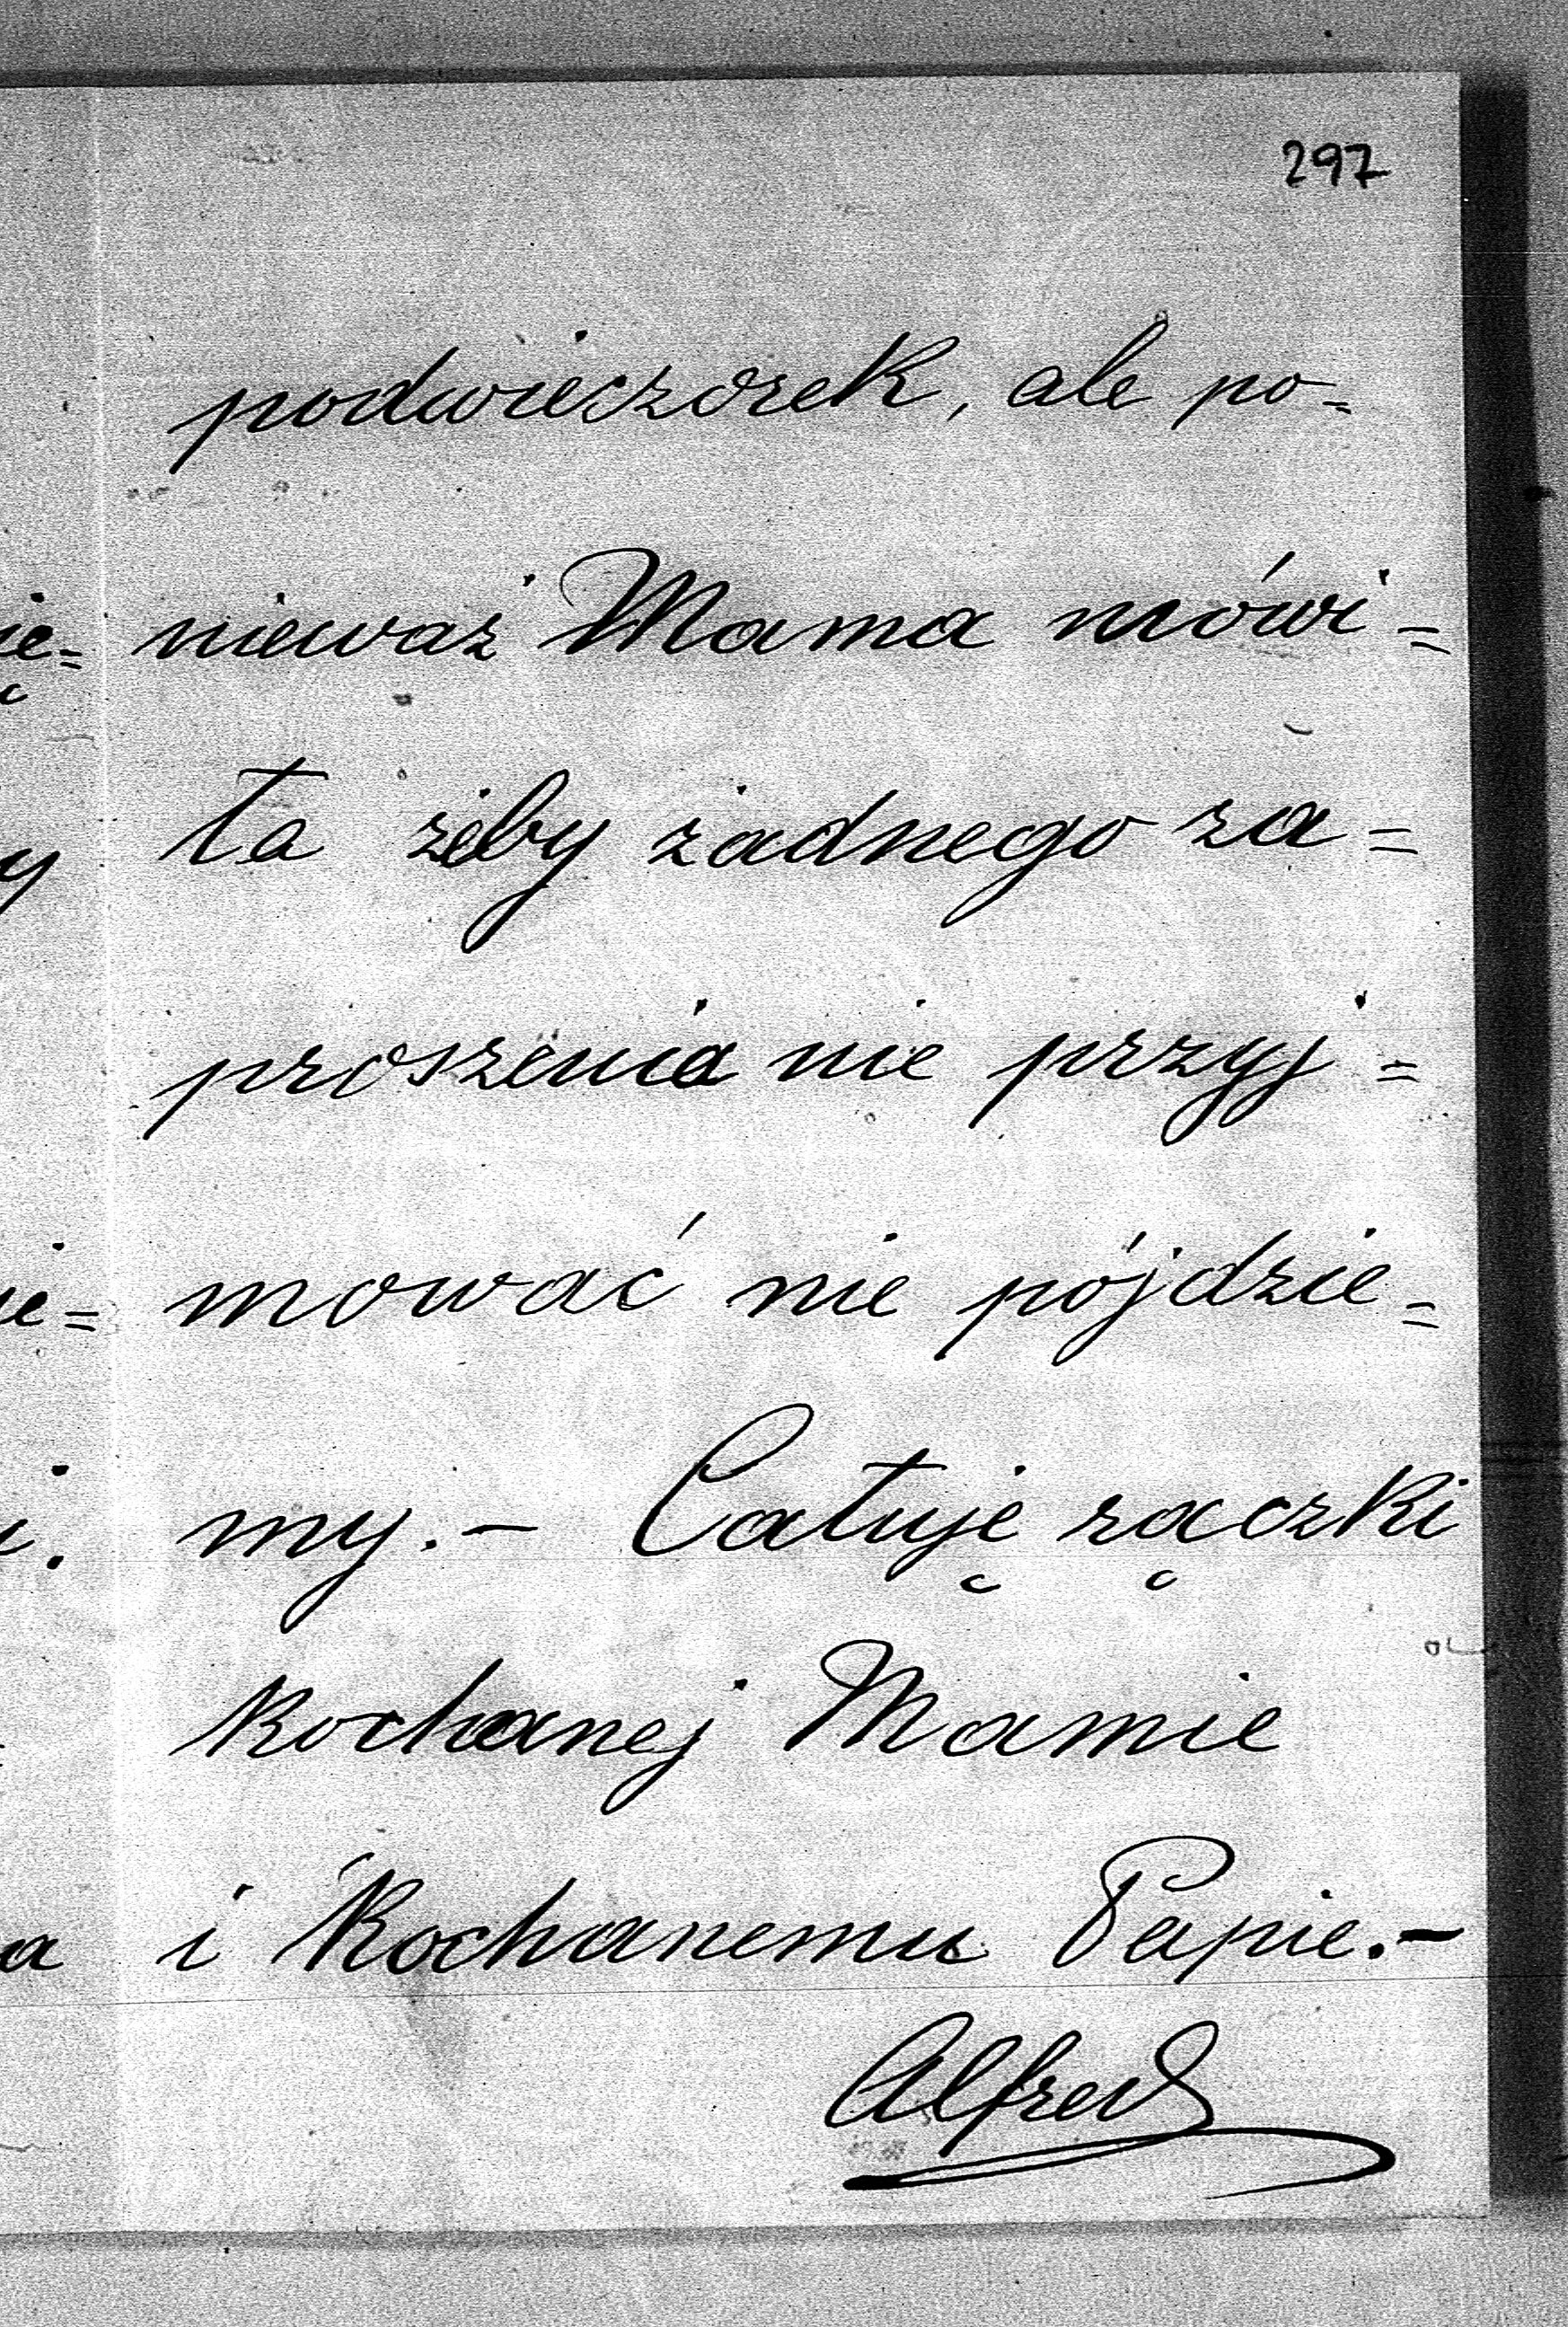 297
podwieczorek, ale po=
nieważ Mama mówi=
ła żeby żadnego za=
proszenia nie przyj=
mować nie pójdzie=
my.— Całuję rączki
kochanej Mamie
i Kochanemu Papie.—
Alfred